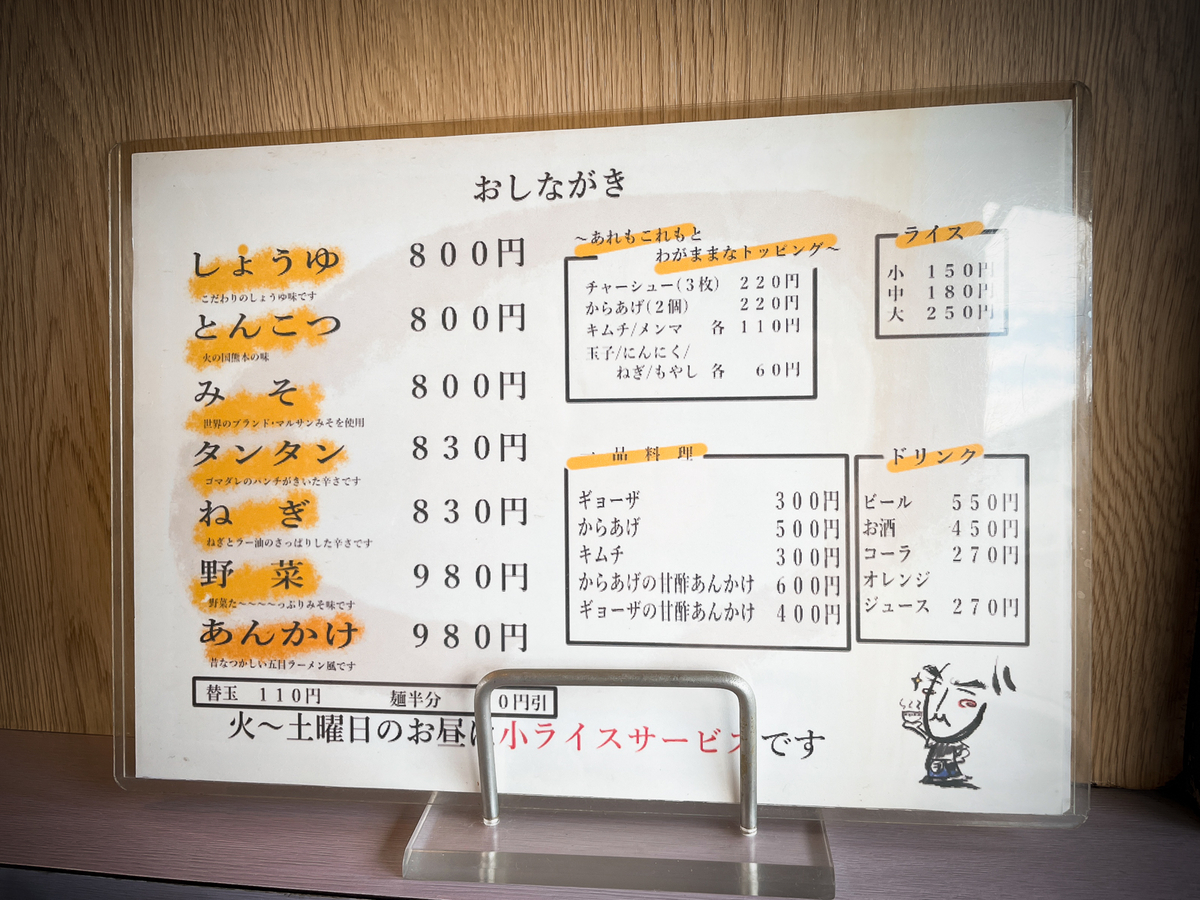 おしながき
しょうゆ 800円
こだわりのしょうゆ味です
とんこつ 800円
火の国熊本の味
みそ 800円
世界のブランド・マルサンみそを使用
タンタン 830円
ゴマダレのパンチがきいた辛さです
ねぎ 830円
ねぎとラー油のさっぱりした辛さです
野菜 980円
野菜た～～～～っぷりみそ味です
あんかけ 980円
昔なつかしい五目ラーメン風です
替玉 110円 麺半分 0円引
火～土曜日のお昼は小ライスサービスです
～あれもこれもと
わがままなトッピング～
チャーシュー(3枚) 220円
からあげ(2個) 220円
キムチ/メンマ 各 110円
玉子/にんにく/
ねぎ/もやし 各 60円
ライス
小 150円
中 180円
大 250円
一品料理
ギョーザ 300円
からあげ 500円
キムチ 300円
からあげの甘酢あんかけ 600円
ギョーザの甘酢あんかけ 400円
ドリンク
ビール 550円
お酒 450円
コーラ 270円
オレンジ
ジュース 270円